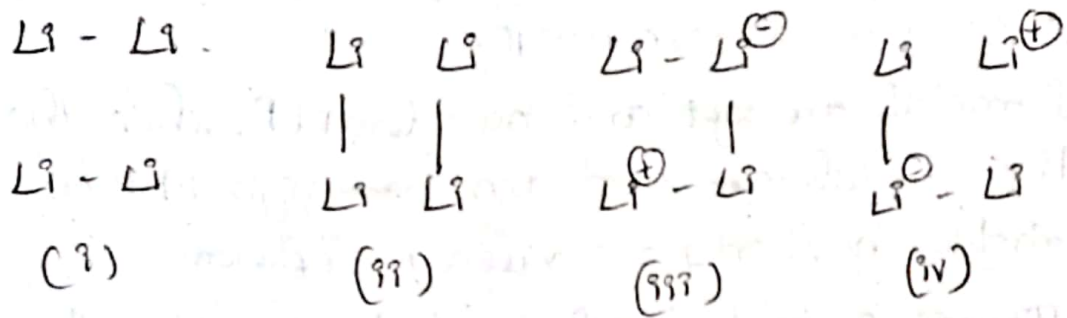 Li - Li Li Li Li - Li⊖ Li Li⊕
| | | |
Li - Li Li Li Li⊕ - Li Li⊖ - Li
(i) (ii) (iii) (iv)